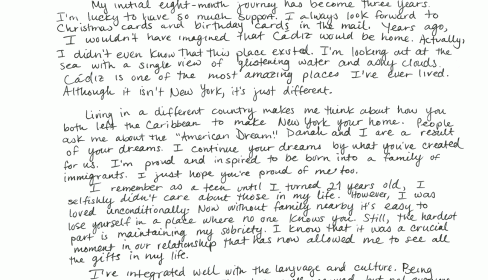 My initial eight-month journey has become three years.
I'm lucky to have so much support. I always look forward to
Christmas cards and birthday cards in the mail. Years ago,
I wouldn't have imagined that Cádiz would be home. Actually,
I didn't even know that this place existed. I'm looking out at the
sea with a single view of glistening water and clouds.
Cádiz is one of the most amazing places I've ever lived.
Although it isn't New York, it's just different.
Living in a different country makes me think about how you
both left the Caribbean to make New York your home. People
ask me about the "American Dream." Danah and I are a result
of your dreams. I continue your dreams by what you've created
for us. I'm proud and inspired to be born into a family of
immigrants. I just hope you're proud of me too.
I remember as a teen until I turned 21 years old, I
selfishly didn't care about those in my life. However, I was
loved unconditionally. Now without family nearby it's easy to
lose yourself in a place where no one knows you. Still, the hardest
part is maintaining my sobriety. I know that it was a crucial
moment in our relationship that has now allowed me to see all
the gifts in my life.
I've integrated well with the language and culture. Being